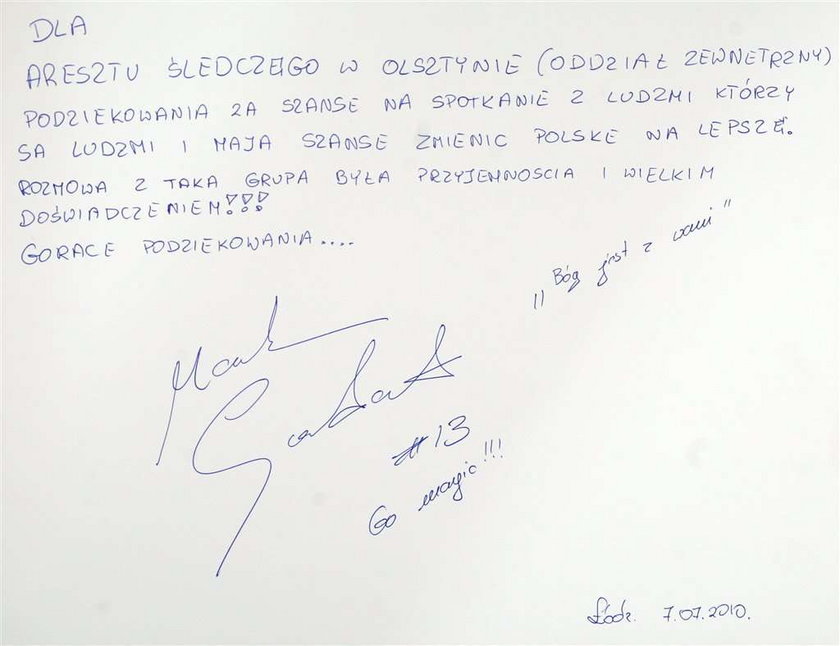 DLA
ARESZTU ŚLEDCZEGO W OLSZTYNIE (ODDZIAŁ ZEWNETRZNY)
PODZIEKOWANIA ZA SZANSE NA SPOTKANIE Z LUDZMI KTÓRZY
SA LUDZMI I MAJA SZANSE ZMIENIC POLSKE NA LEPSZE.
ROZMOWA Z TAKA GRUPA BYŁA PRZYJEMNOSCIA I WIELKIM
DOŚWIADCZENIEM!!!
GORACE PODZIEKOWANIA....
"Bóg jest z wami"
#13
Go magic!!!
Łódz. 7.07.2010.